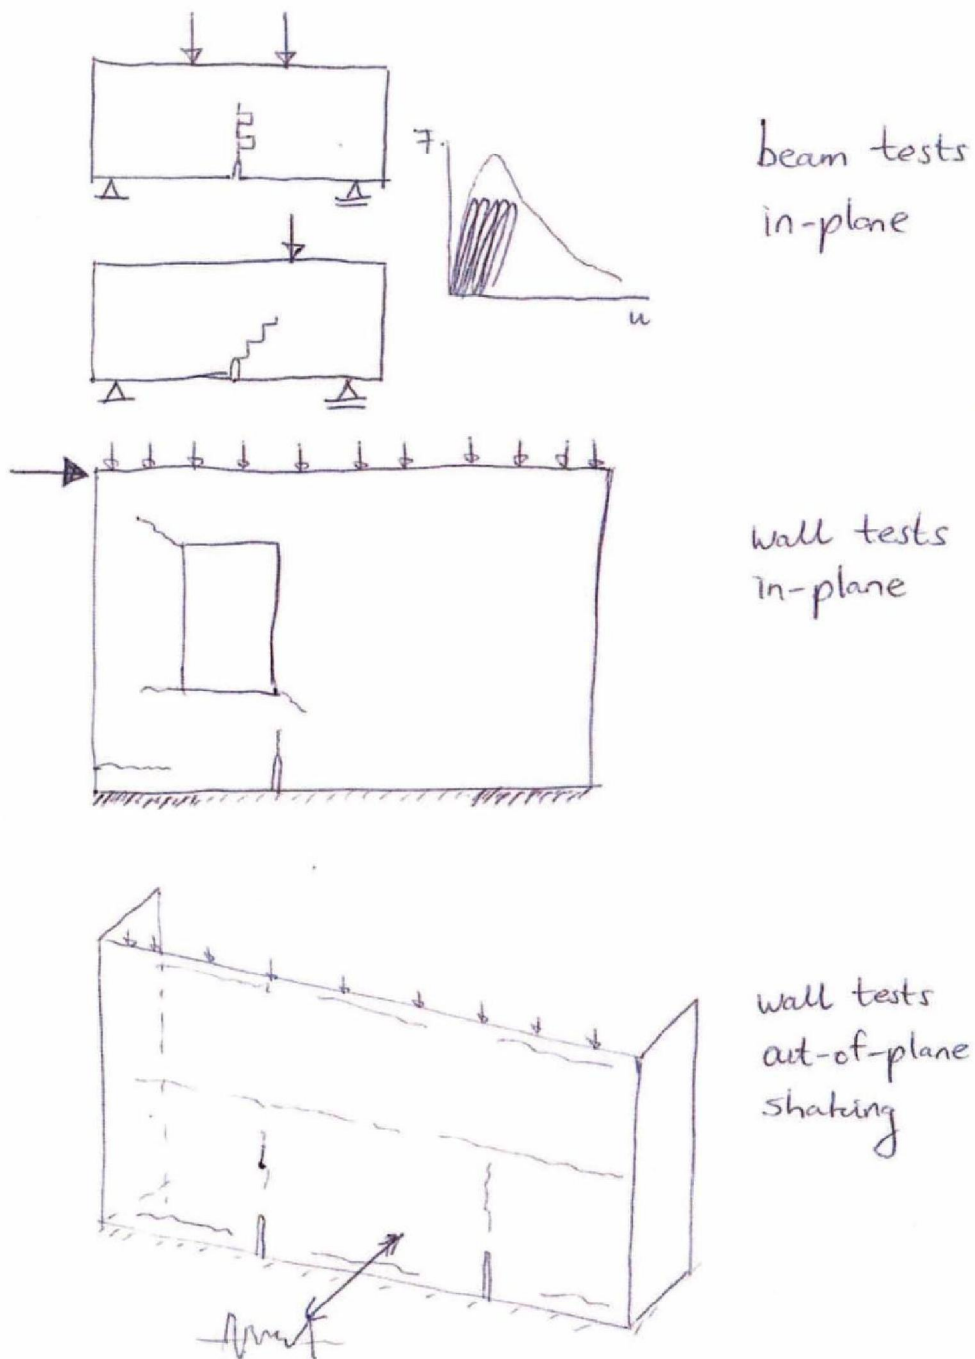 beam tests
in-plane
F
u
wall tests
in-plane
wall tests
out-of-plane
shaking